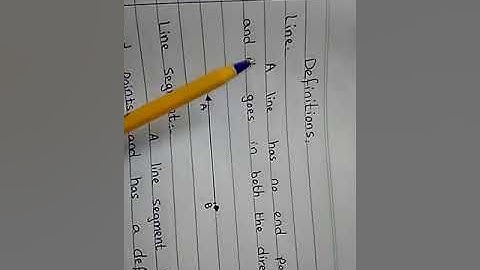 Definitions.
Line. A line has no end
and it goes in both the
A B
Line Segment. A line segment
points and has a